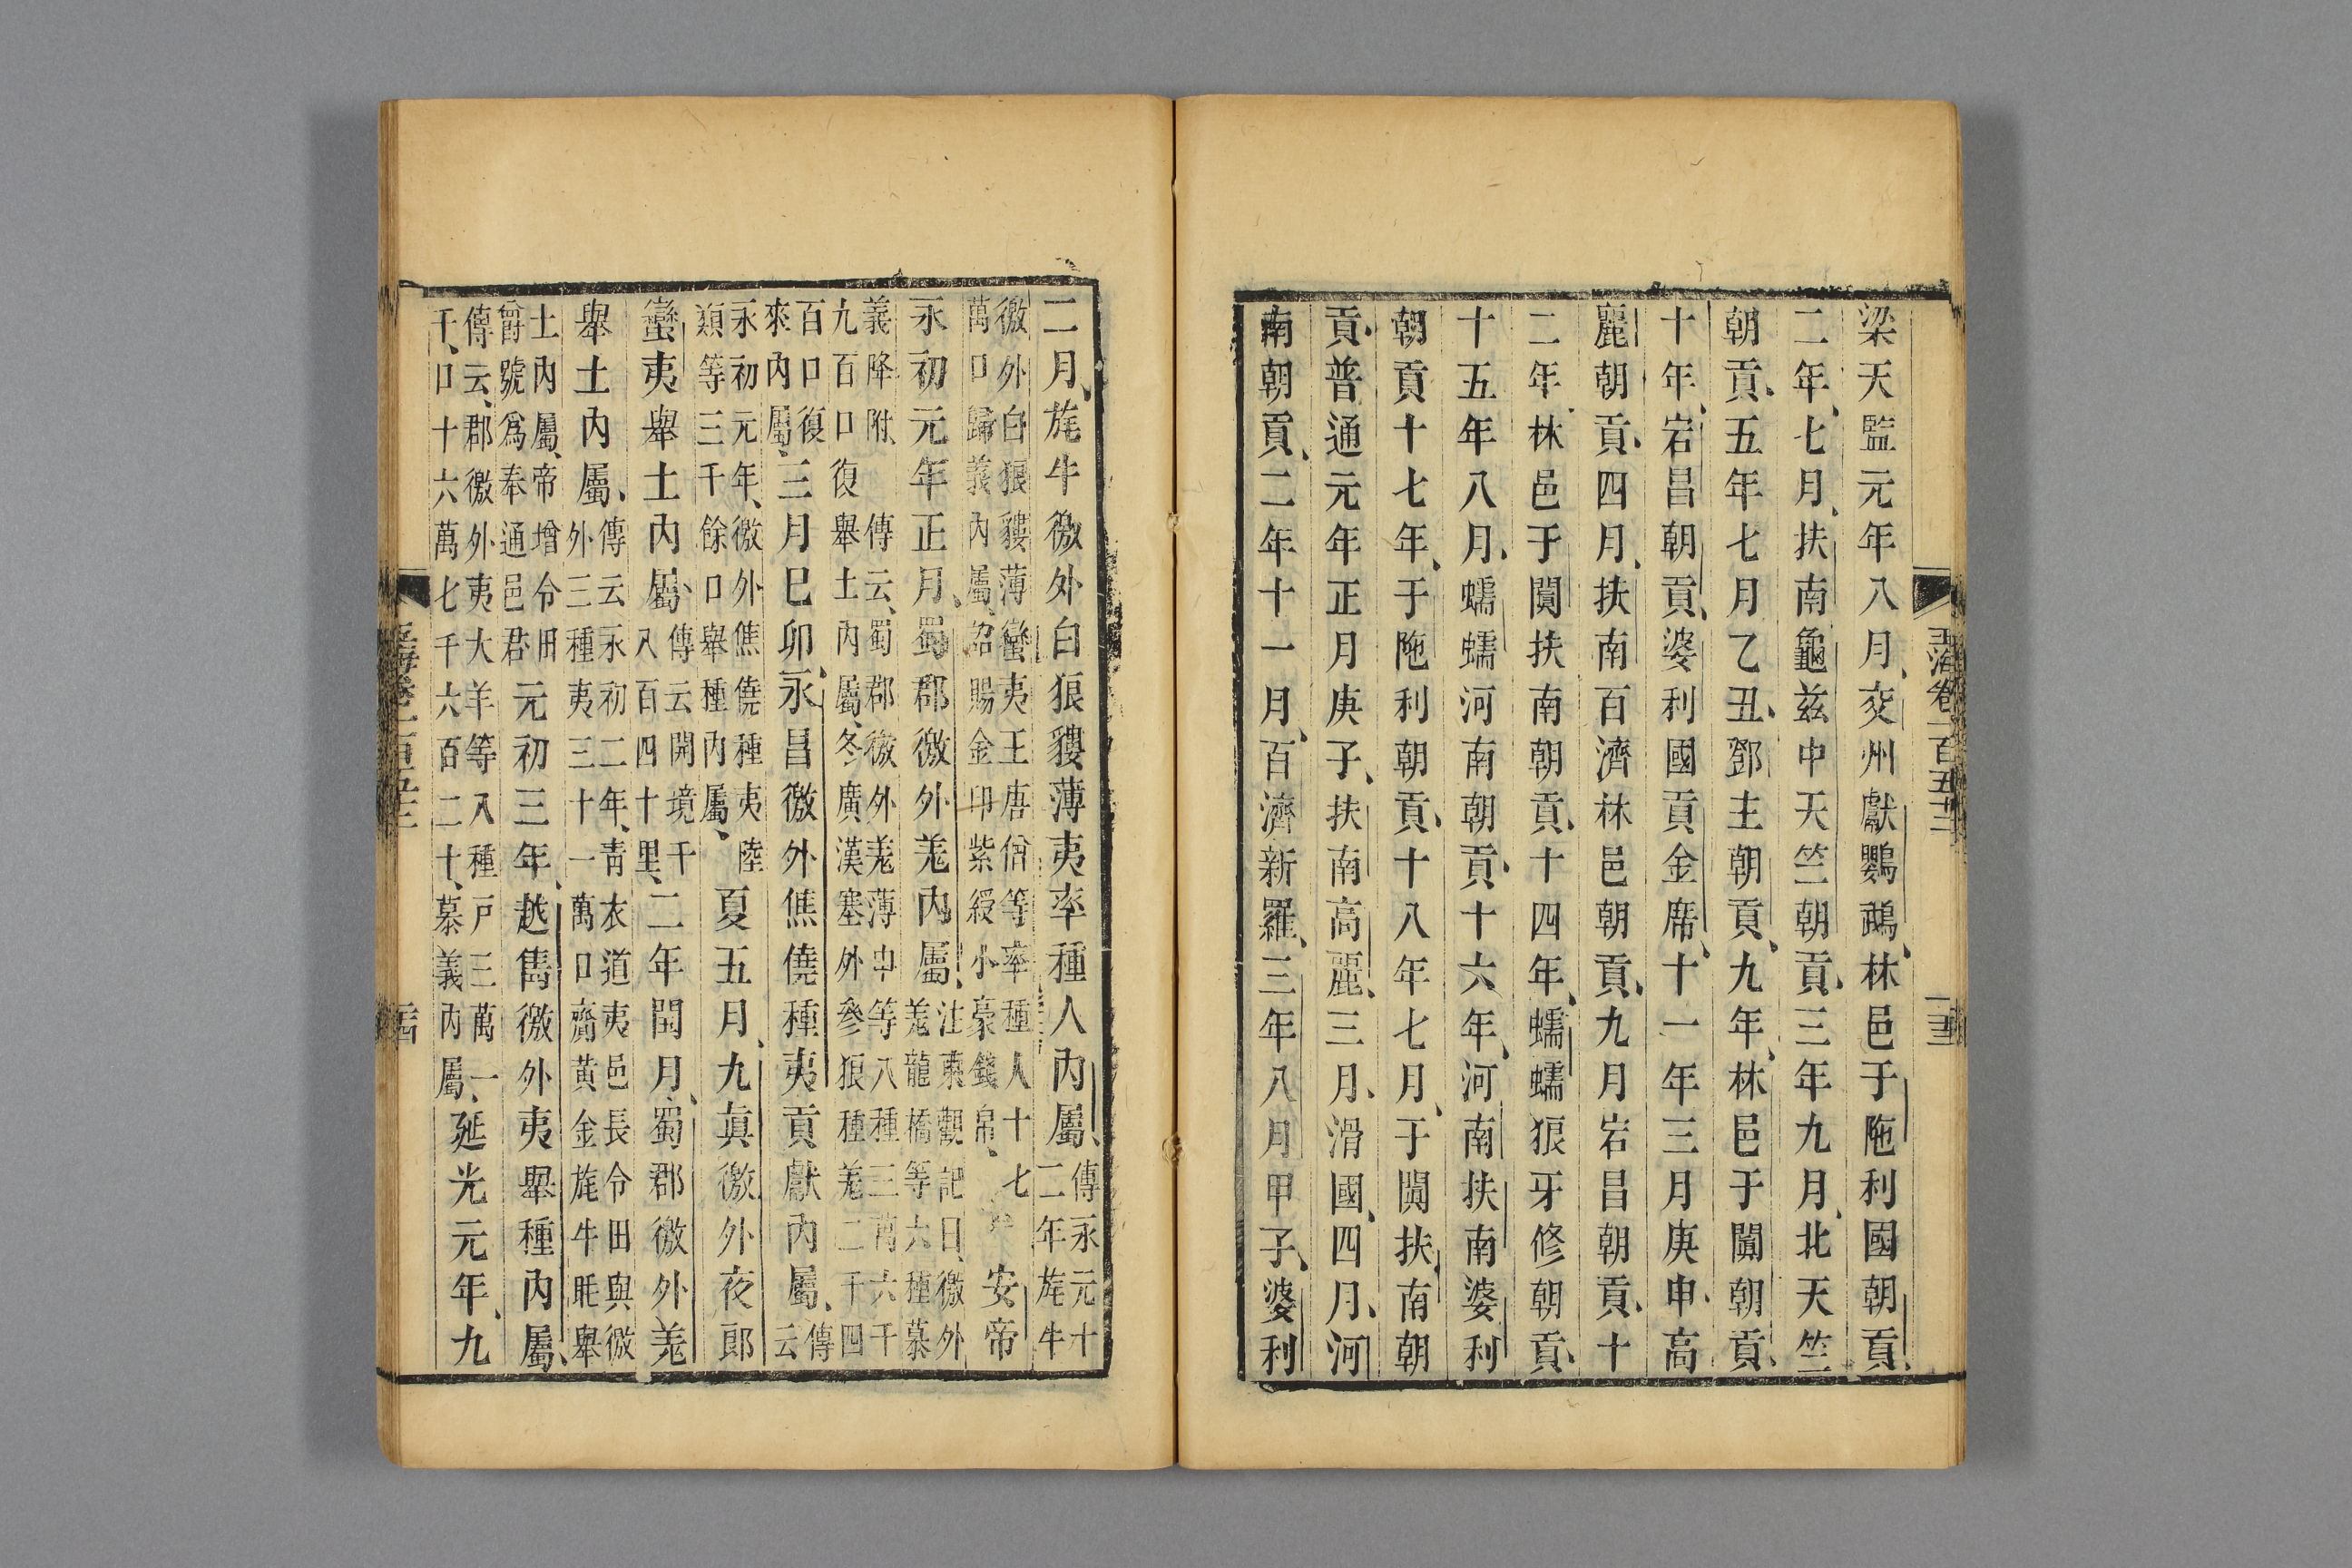 玉海卷一百五十二
梁天監元年八月、交州獻鸚鵡、林邑于陁利國朝貢、
二年、七月、扶南龜兹中天竺朝貢、三年九月、北天竺
朝貢、五年七月乙丑、鄧主朝貢、九年、林邑于闐朝貢、
十年、宕昌朝貢、婆利國貢金席、十一年三月庚申、高
麗朝貢、四月、扶南百濟林邑朝貢、九月宕昌朝貢、十
二年、林邑于闐扶南朝貢、十四年、蠕蠕狼牙修朝貢、
十五年八月、蠕蠕河南朝貢、十六年、河南扶南婆利
朝貢十七年、于陁利朝貢、十八年七月、于闐扶南朝
貢、普通元年正月庚子、扶南高麗、三月、滑國、四月、河
南朝貢、二年十一月、百濟新羅、三年八月甲子、婆利
二月、旄牛徼外白狼貗薄夷率種人内屬、
傳永元十
二年旄牛
徼外白狼貗薄蠻夷王唐繒等率種人十七
萬口歸義内屬、詔賜金印紫綬小豪錢帛、
安帝
永初元年正月、蜀郡徼外羌内屬、
注東觀記曰、徼外
羌龍橋等六種慕
義降附、傳云、蜀郡徼外羌薄申等八種三萬六千
九百口復舉土内屬、冬廣漢塞外參狼種羌二千四
百口復
來内屬、
三月己卯、永昌徼外僬僥種夷貢獻内屬、
傳
云
永初元年、徼外僬僥種夷陸
類等三千餘口舉種内屬、
夏五月、九真徼外夜郎
蠻夷舉土内屬、
傳云開境千
八百四十里、
二年閏月、蜀郡徼外羌
舉土内屬、
傳云永初二年、青衣道夷邑長令田與徼
外三種夷三十一萬口齎黃金旄牛毦舉
土内屬、帝增令田
爵號爲奉通邑君
元初三年、越巂徼外夷舉種内屬、
傳云、郡徼外夷大羊等八種戶三萬一
千、口十六萬七千六百二十、慕義内屬、
延光元年、九